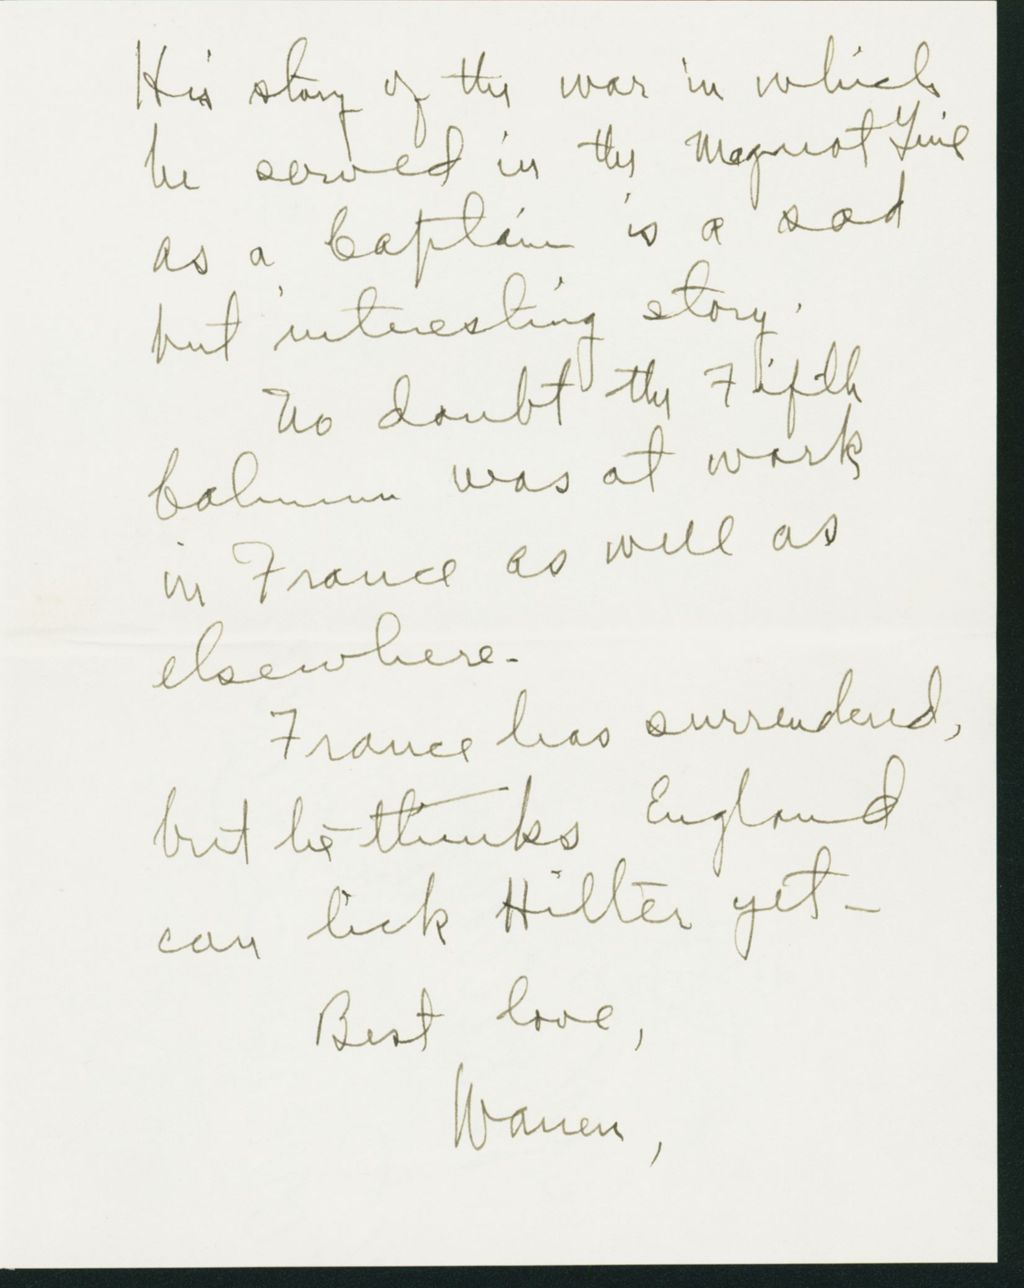 His story of the war in which
he served in the Maginot Line
as a Captain is a sad
but interesting story.
No doubt the Fifth
Column was at work
in France as well as
elsewhere.
France has surrendered,
but he thinks England
can lick Hitler yet—
Best love,
Warren,